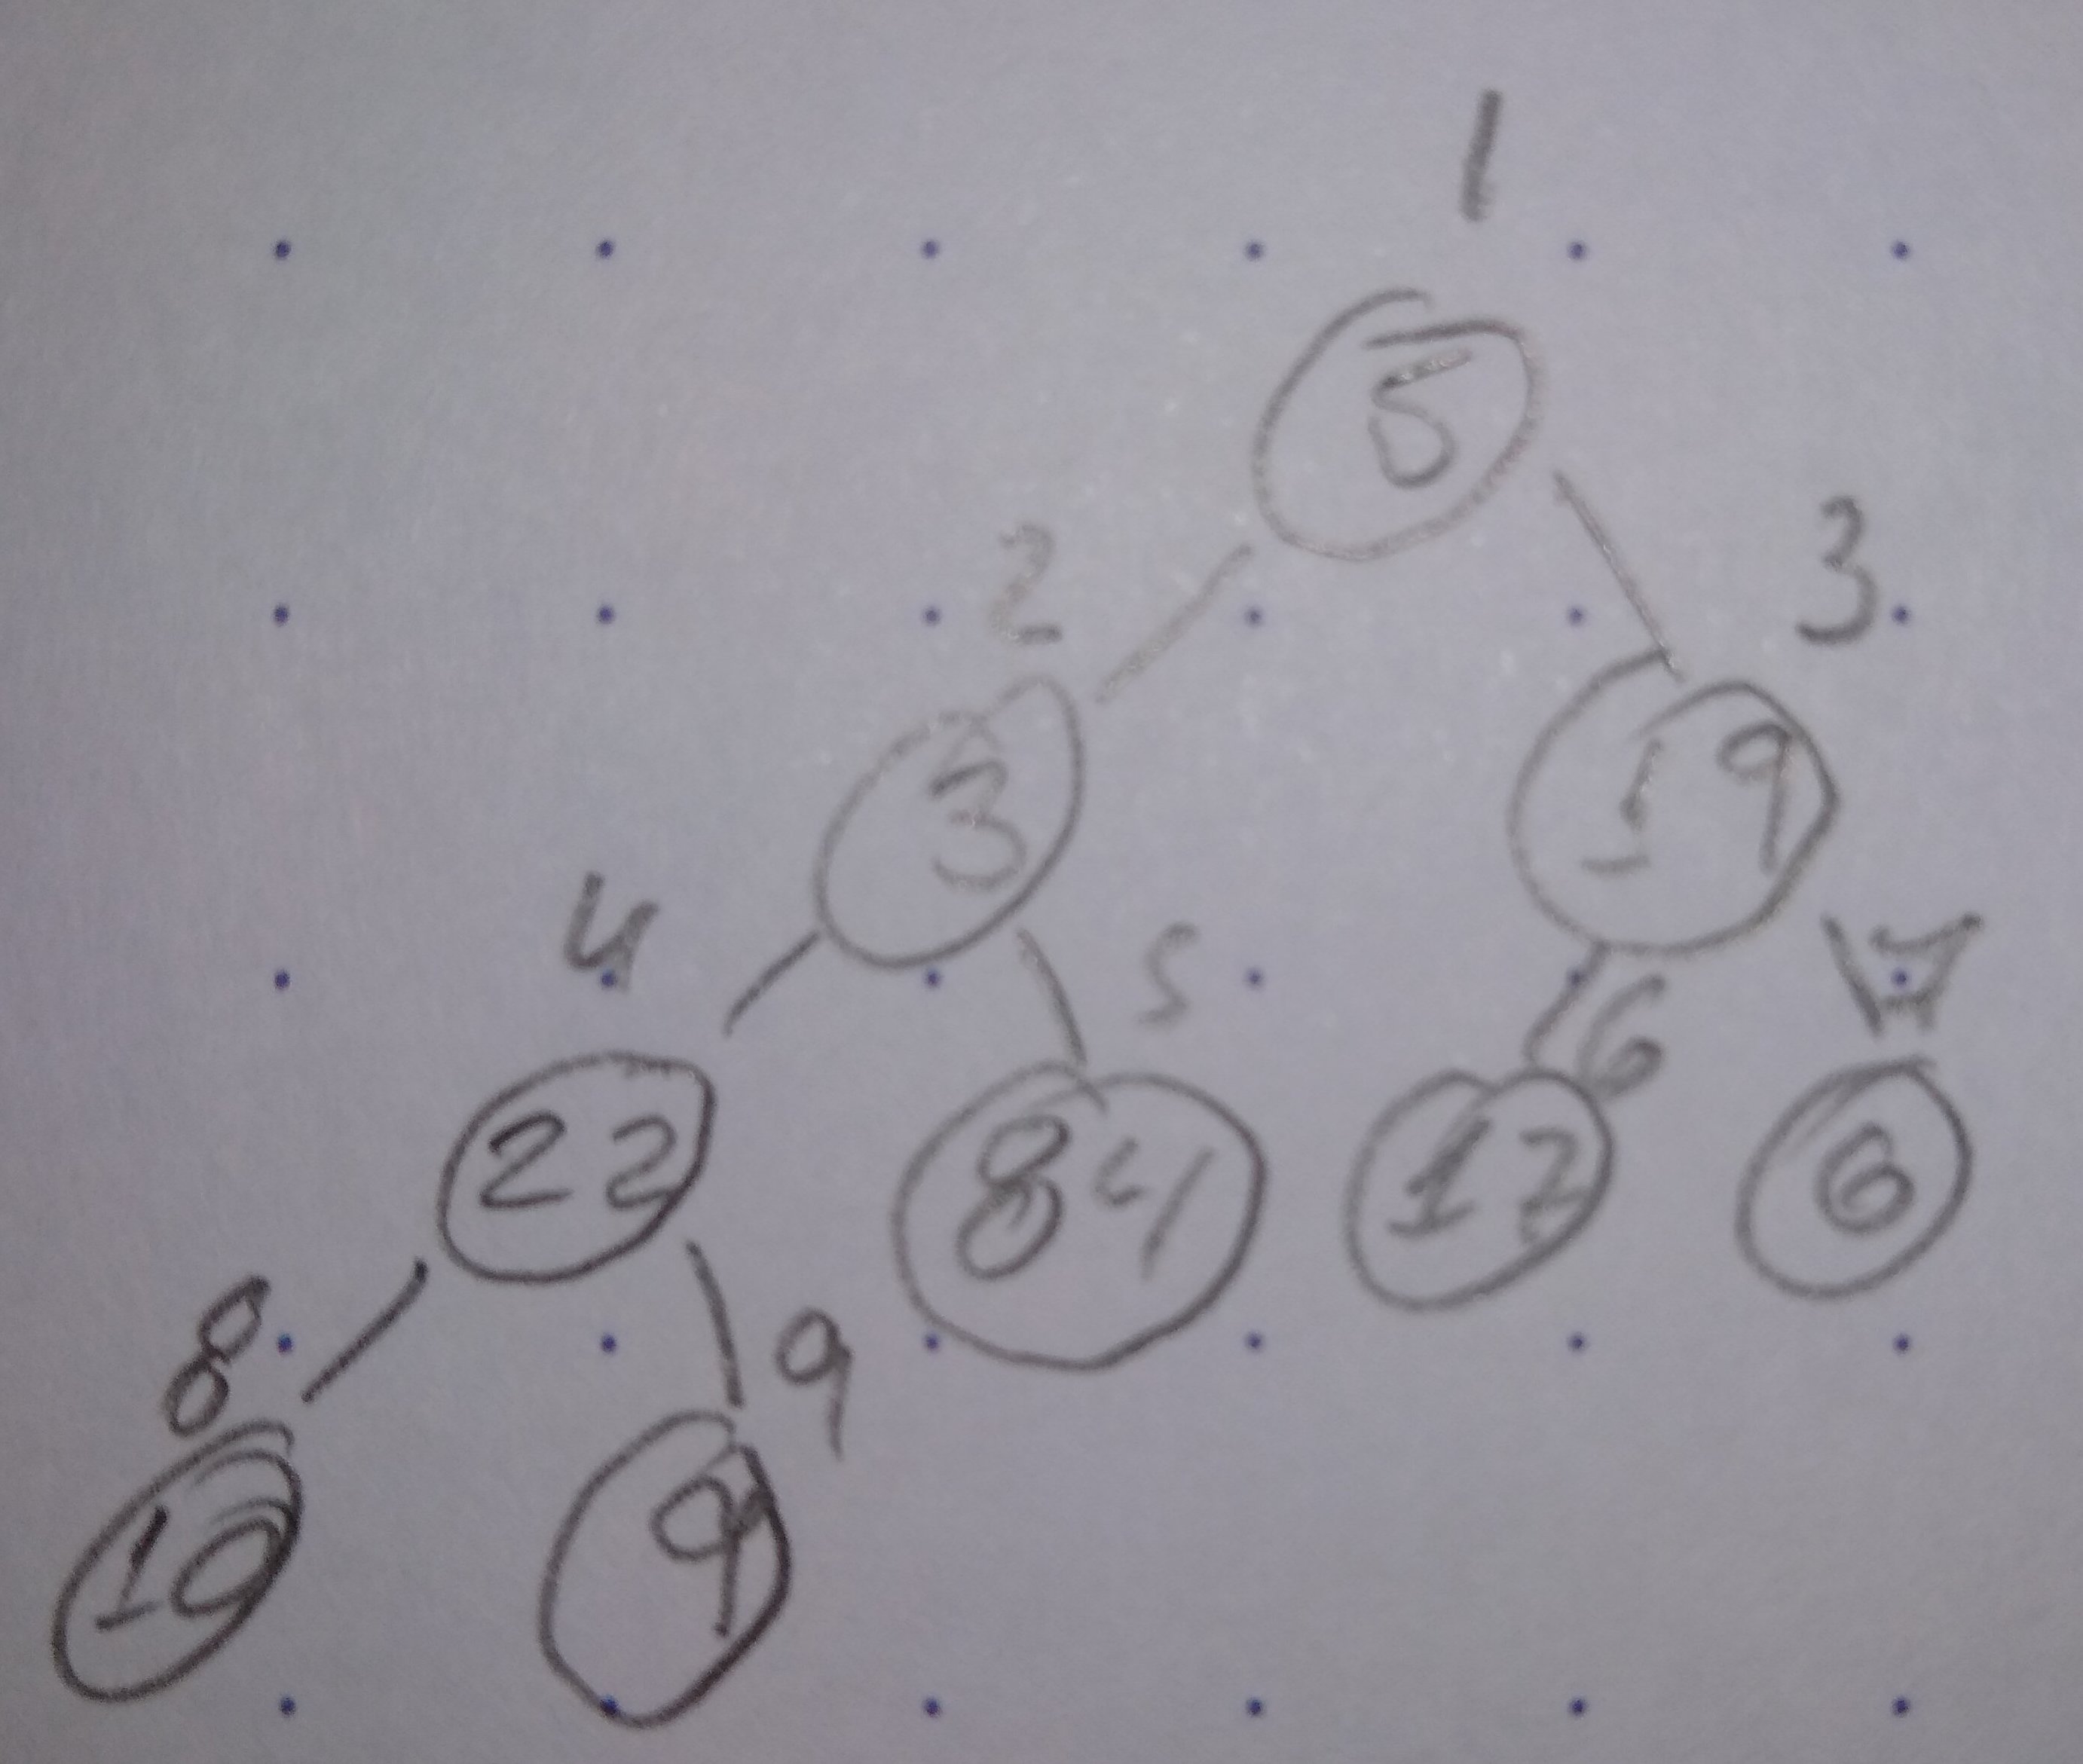 1
5
2 3
3 19
4 5 6 7
22 84 17 6
8 9
10 9